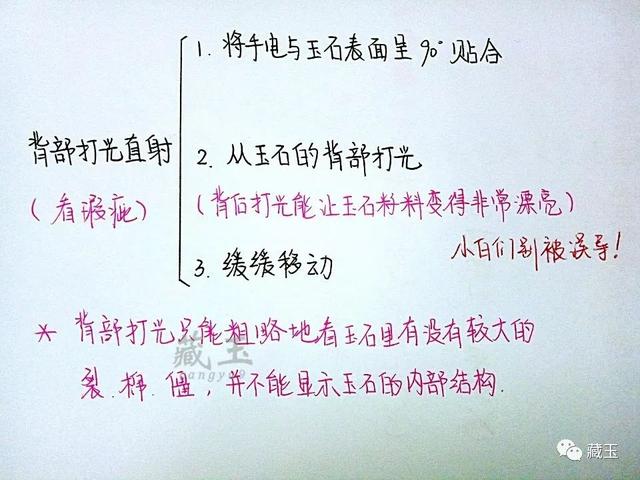 1. 将手电与玉石表面呈90°贴合
背部打光直射
2. 从玉石的背部打光
(看瑕疵)
(背后打光能让玉石籽料变得非常漂亮)
小白们别被误导!
3. 缓缓移动
* 背部打光只能粗略地看玉石里有没有较大的
裂.棉.僵,并不能显示玉石的内部结构.
藏玉
cangyu
藏玉